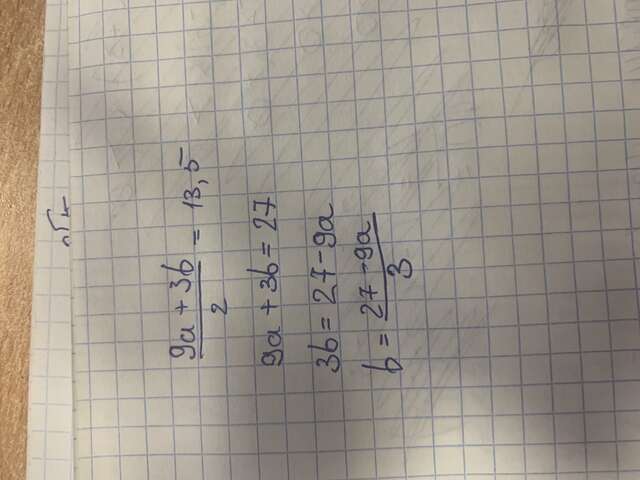 9a + 3b / 2 = 13,5
9a + 3b = 27
3b = 27 - 9a
b = 27 - 9a / 3